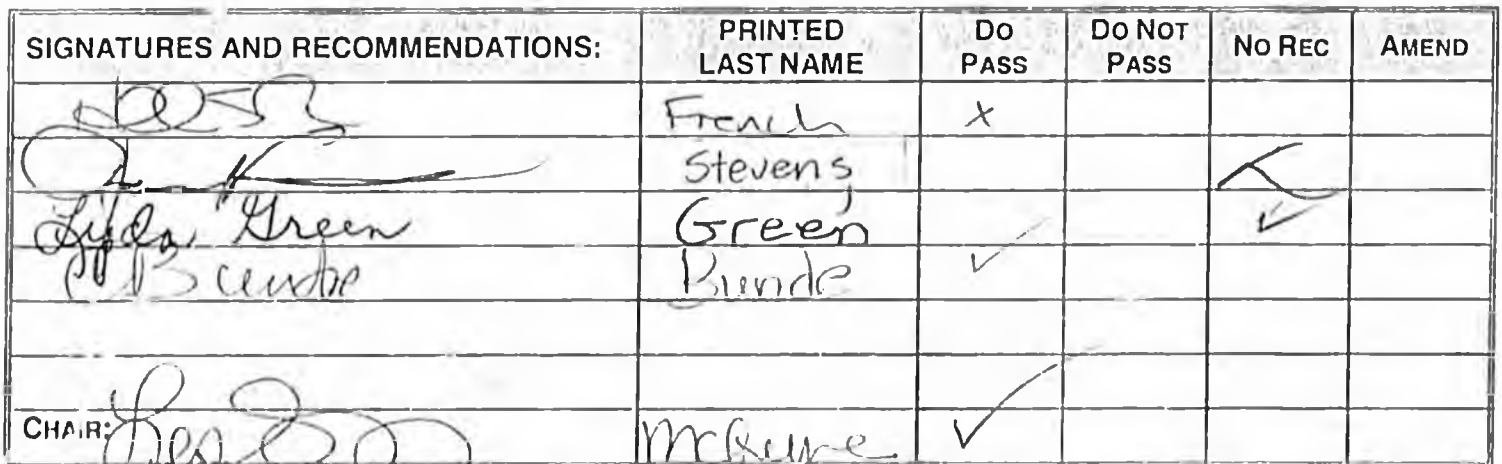 SIGNATURES AND RECOMMENDATIONS: PRINTED LAST NAME DO PASS DO NOT PASS NO REC AMEND
French X
Stevens X
Lyda Green Green ✓
Bunde Bunde ✓
CHAIR: McGuire ✓